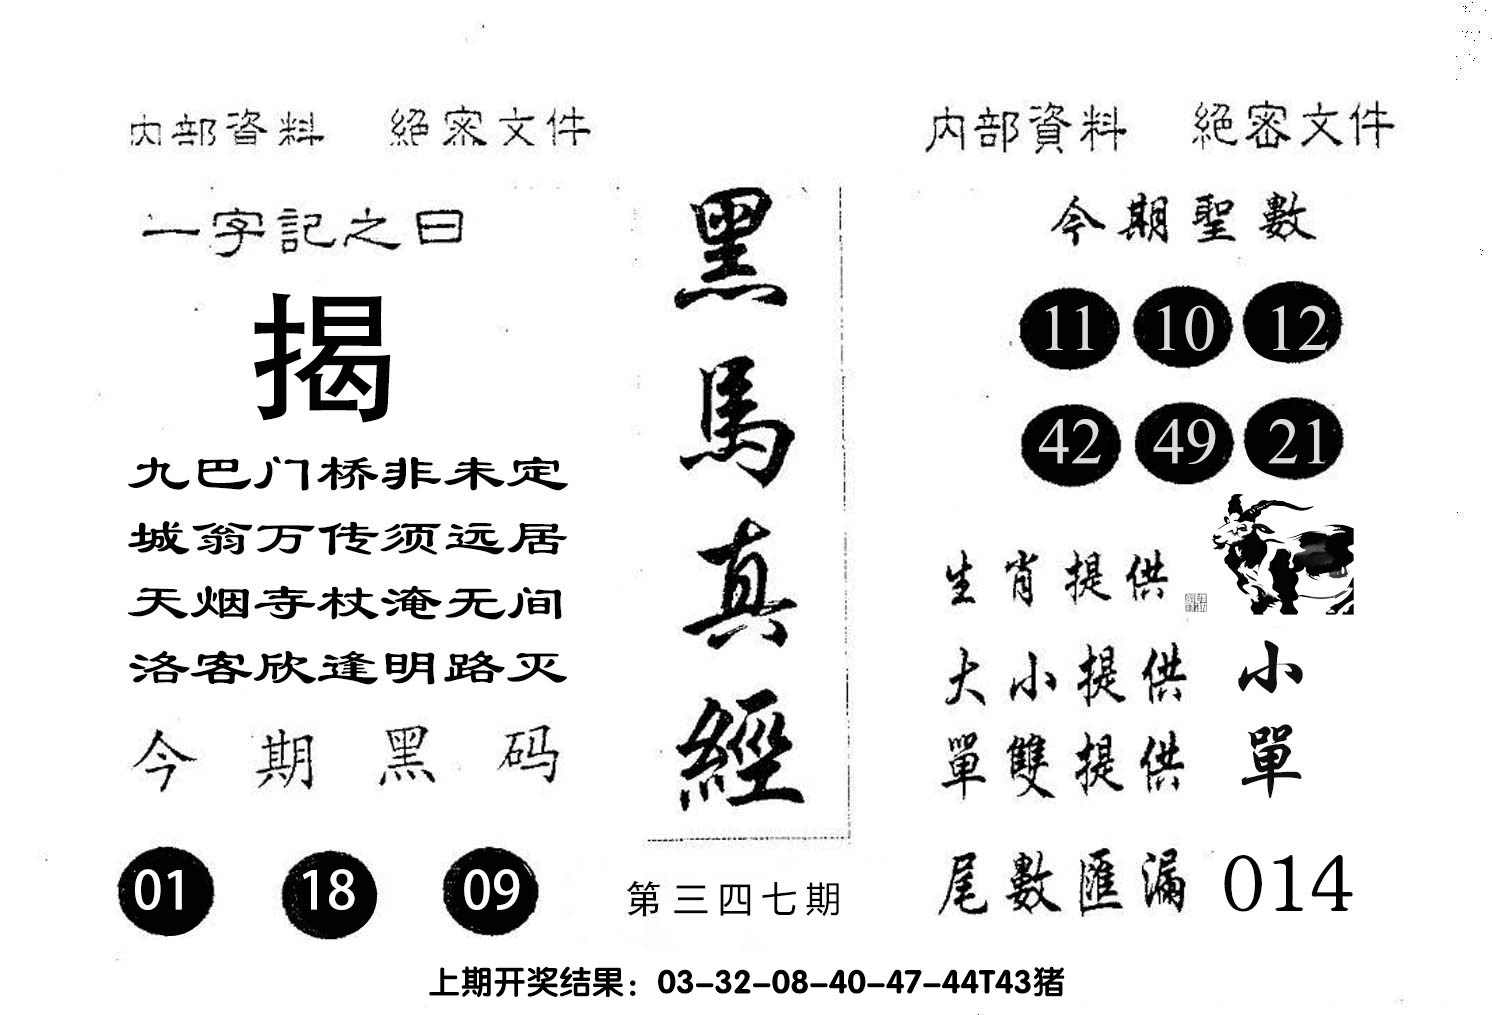 内部資料 絕密文件
一字記之曰
揭
九巴门桥非未定
城翁万传须远居
天烟寺杖淹无间
洛客欣逢明路灭
今期黑码
01 18 09
黑馬真經
第三四七期
内部資料 絕密文件
今期聖數
11 10 12
42 49 21
生肖提供
大小提供 小
單雙提供 單
尾數匯漏 014
上期开奖结果：03-32-08-40-47-44T43猪